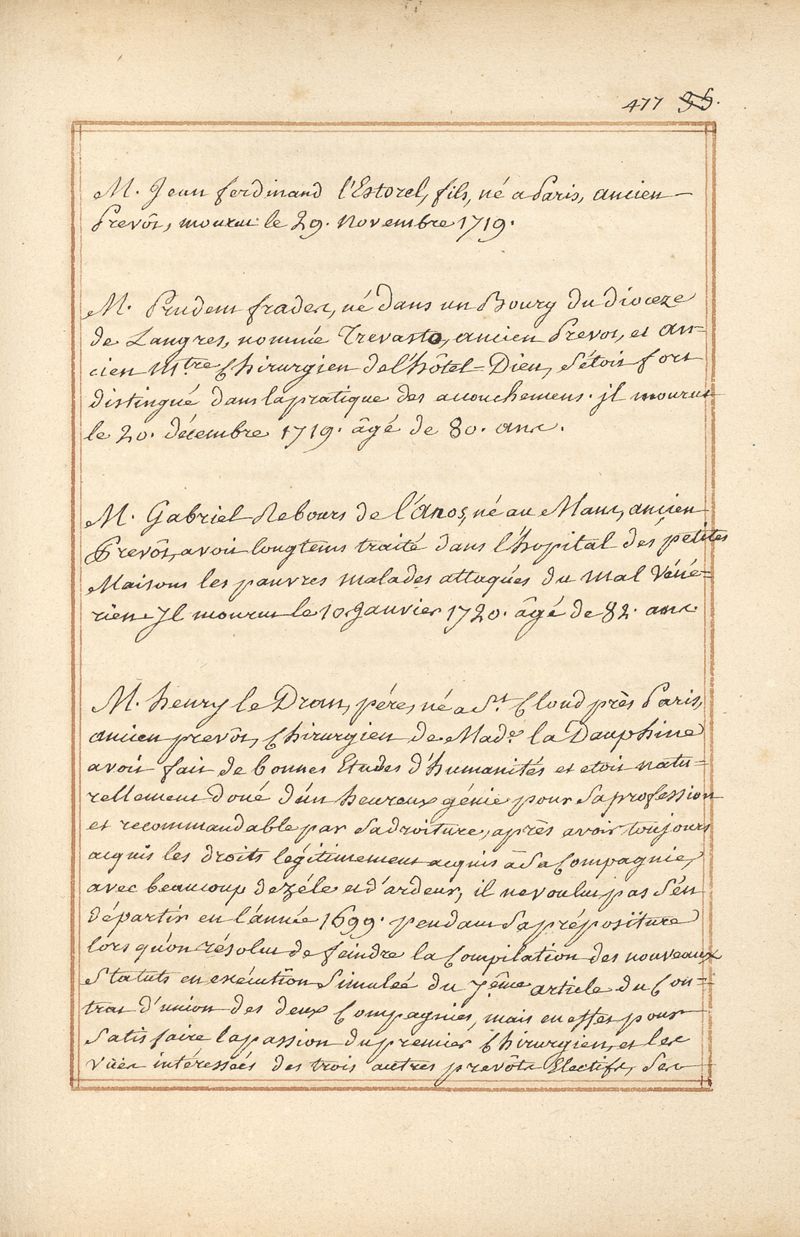 477 35.
M. Jean ferdinand l'Estorel, fils, né a Paris, ancien
Prevôt, mourut le 29. Novembre 1719.
M. Prudent frader, né dans un Bourg du dioceze
de Langres, nommée Trevasto, ancien Prevot, et an-
cien Mtre Chirurgien de l'hôtel=Dieu, S'étoit fort
distingué dans la pratique des acouchemens. jl mourut
le 20. décembre 1719. âgé de 80. ans.
M. Gabriel Rebours de l'anos, né au Mans, ancien
Prevôt, avoit longtems traité dans l'hopital des petites
Maisons les pauvres malades attaqués du mal Véné=
rien. Jl mourut le 10. Janvier 1720. âgé de 82. ans.
M. henry le Dran, pére, né a St. Cloud près Paris,
ancien prevôt, Chirurgien de Made. la Dauphine
avoit fait de bonnes Etudes d'humanités et etoit natu=
rellement doué d'un heureux génie pour Sa profession
et recommandable par Sa droiture, après avoir toujours
acquis les droits legitimement acquis à Sa Compagnie,
avec beaucoup de zéle et d'ardeur, il ne voulut pas S'en
départir en l'année 1699. pendant Sa prépositure
lors qu'on résolut de feindre la Compilation des nouveaux
Statuts en exécution Simulée du 7.ême article du Con=
trat d'union des deux Compagnies, mais en effet pour
Satisfaire la passion du premier Chirurgien, et les
vües intéressées des trois autres prevôts Electifs, Ses